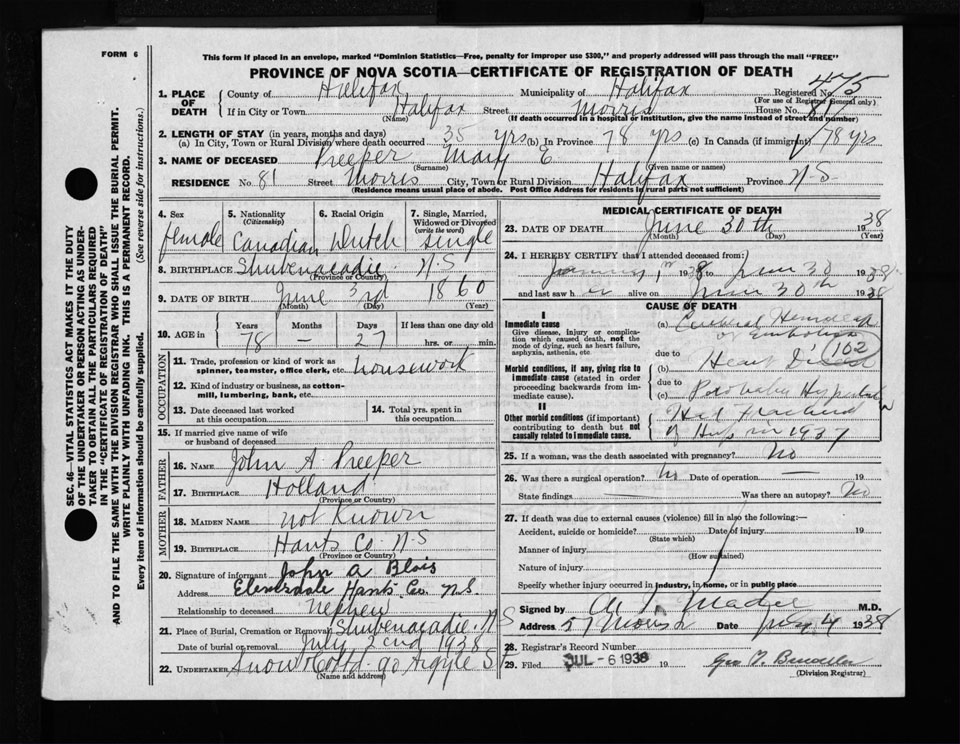 FORM 6
This form if placed in an envelope, marked "Dominion Statistics—Free, penalty for improper use $300," and properly addressed will pass through the mail "FREE"
PROVINCE OF NOVA SCOTIA—CERTIFICATE OF REGISTRATION OF DEATH
475
1. PLACE OF DEATH County of Halifax Municipality of Halifax Registered No.
(For use of Registrar General only)
If in City or Town Halifax Street Morris House No. 81
(Name) (If death occurred in a hospital or institution, give the name instead of street and number)
2. LENGTH OF STAY (in years, months and days)
(a) In City, Town or Rural Division where death occurred 35 yrs (b) In Province 78 yrs (c) In Canada (if immigrant) 78 yrs
3. NAME OF DECEASED Preeper Mary E
(Surname) (Given name or names)
RESIDENCE No. 81 Street Morris City, Town or Rural Division Halifax Province N-S
(Residence means usual place of abode. Post Office Address for residents in rural parts not sufficient)
SEC. 46—VITAL STATISTICS ACT MAKES IT THE DUTY
OF THE UNDERTAKER OR PERSON ACTING AS UNDER-
TAKER TO OBTAIN ALL THE PARTICULARS REQUIRED
IN THE "CERTIFICATE OF REGISTRATION OF DEATH"
AND TO FILE THE SAME WITH THE DIVISION REGISTRAR WHO SHALL ISSUE THE BURIAL PERMIT.
WRITE PLAINLY WITH UNFADING INK. THIS IS A PERMANENT RECORD.
Every item of information should be carefully supplied. (See reverse side for instructions.)
4. Sex 5. Nationality (Citizenship) 6. Racial Origin 7. Single, Married, Widowed or Divorced (write the word)
female Canadian Dutch single
8. BIRTHPLACE Shubenacadie N-S
(Province or Country)
9. DATE OF BIRTH June 3rd 1860
(Month) (Day) (Year)
10. AGE in Years Months Days If less than one day old
78 — 27 hrs. or min.
OCCUPATION
11. Trade, profession or kind of work as spinner, teamster, office clerk, etc. housework
12. Kind of industry or business, as cotton-mill, lumbering, bank, etc.
13. Date deceased last worked at this occupation
14. Total yrs. spent in this occupation
15. If married give name of wife or husband of deceased
FATHER
16. NAME John A Preeper
17. BIRTHPLACE Holland
(Province or Country)
MOTHER
18. MAIDEN NAME not Known
19. BIRTHPLACE Hants Co. N-S
(Province or Country)
20. Signature of informant John A Blois
Address Hants Co. N.S.
Relationship to deceased Nephew
21. Place of Burial, Cremation or Removal Shubenacadie. N S
Date of burial or removal July 2nd 1938
22. UNDERTAKER Snow Co Ltd 90 Argyle St
(Name and address)
MEDICAL CERTIFICATE OF DEATH
23. DATE OF DEATH June 30th 1938
(Month) (Day) (Year)
24. I HEREBY CERTIFY that I attended deceased from:
January 1st 1938 to June 30 1938
and last saw her alive on June 30th 1938
CAUSE OF DEATH
I
Immediate cause
Give disease, injury or complication which caused death, not the mode of dying, such as heart failure, asphyxia, asthenia, etc.
(a) Cerebral
or Embolism
due to
102
(b) Heart Disease
Morbid conditions, if any, giving rise to immediate cause (stated in order proceeding backwards from immediate cause).
due to
(c) Probably
II
Other morbid conditions (important) contributing to death but not causally related to immediate cause.
Had fractured
Hip in 1937
25. If a woman, was the death associated with pregnancy? No
26. Was there a surgical operation? No Date of operation 19
State findings Was there an autopsy? No
27. If death was due to external causes (violence) fill in also the following:—
Accident, suicide or homicide? Date of injury 19
(State which)
Manner of injury
(How sustained)
Nature of injury
Specify whether injury occurred in industry, in home, or in public place
Signed by M.D.
Address 57 Morris Date July 4 1938
28. Registrar's Record Number
29. Filed JUL - 6 1938
(Division Registrar)